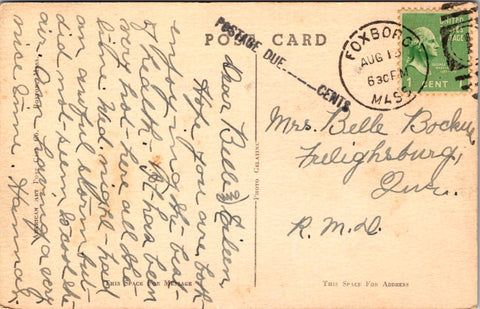 POST CARD
POSTAGE DUE
CENTS
FOXBORO
AUG 13
630 PM
MASS
UNITED STATES
POSTAGE
1 CENT
Dear Belle & Eileen,
Hope you are both
enjoying the best
of health. It has been
very hot here all the
time. Wed. night had
an awful storm but
did not seem to cool the
air. Am having a very
nice time. Hannah.
Mrs. Belle
Freilighsburg,
Que.
R. M. D.
PHOTO GELATINE
THIS SPACE FOR MESSAGE
THIS SPACE FOR ADDRESS